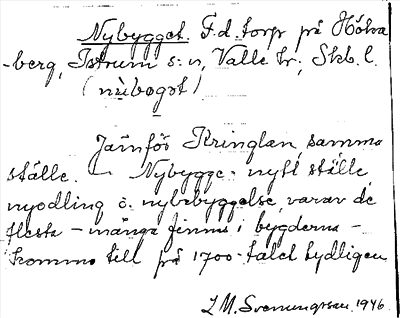 Nybygget. F.d. torp på Höka
-berg, Istrum s:n, Valle hr, Skb. l.
(nùbogot)
Jämför Kringlan, samma
ställe. — Nybygge = nytt ställe
nyodling o. nybebyggelse, varav de
flesta – många finns i bygderna –
kommo till på 1700-talet tydligen
L.M. Svenungsson. 1946